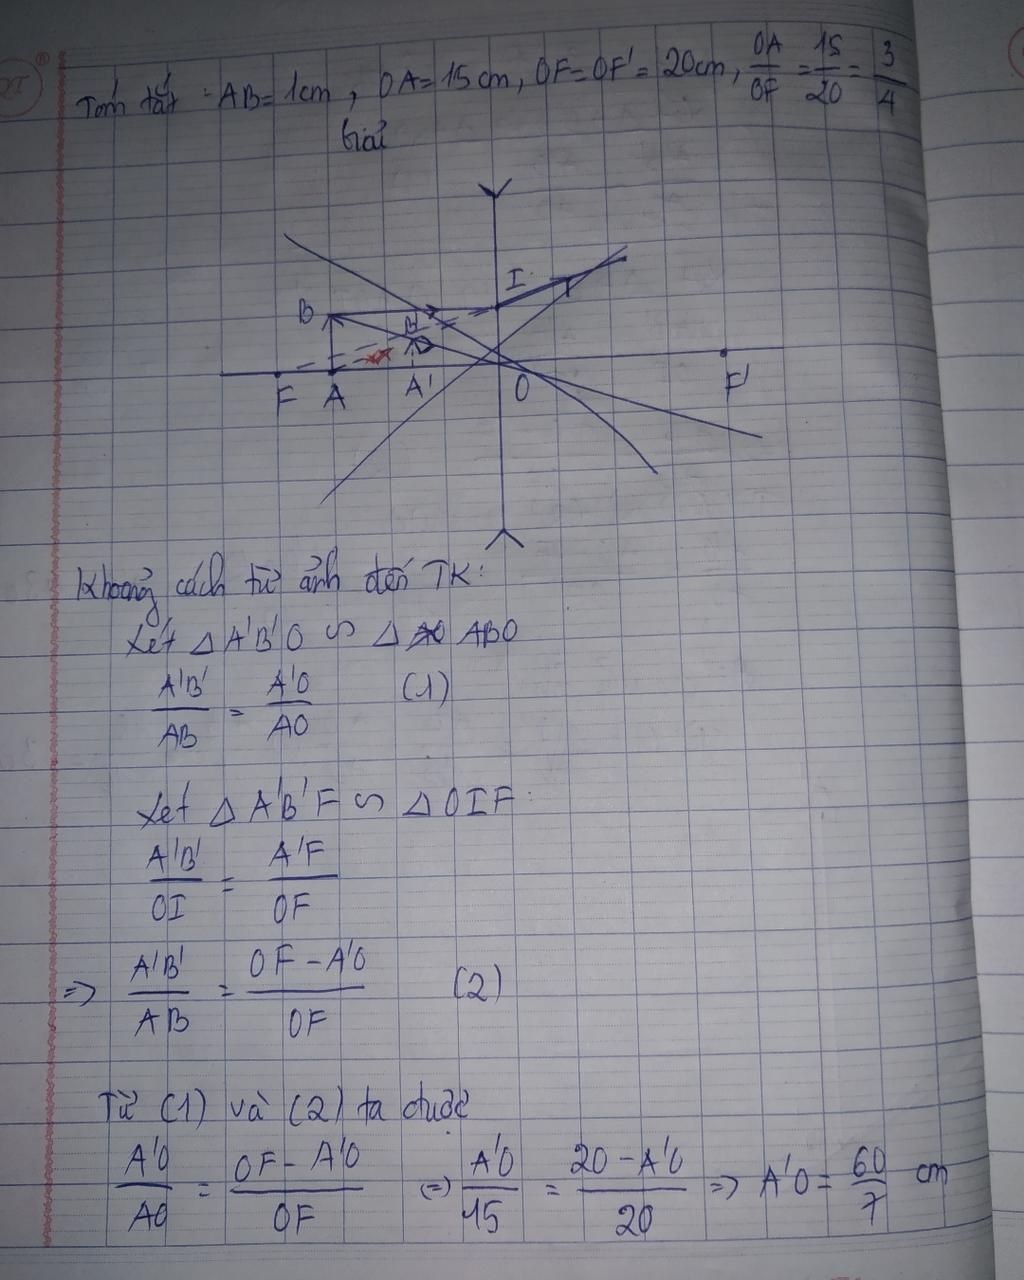 Tóm tắt: AB = 1cm, OA = 15cm, OF = OF' = 20cm, OA/OF = 15/20 = 3/4
Giải
I
B
B'
F A A' O F'
Khoảng cách từ ảnh đến TK:
Xét Δ A'B'O ∽ Δ ABO
A'B'/AB = A'O/AO (1)
Xét Δ A'B'F ∽ Δ OIF:
A'B'/OI = A'F/OF
=> A'B'/AB = OF - A'O/OF (2)
Từ (1) và (2) ta được
A'O/AO = OF - A'O/OF (=) A'O/15 = 20 - A'O/20 => A'O = 60/7 cm